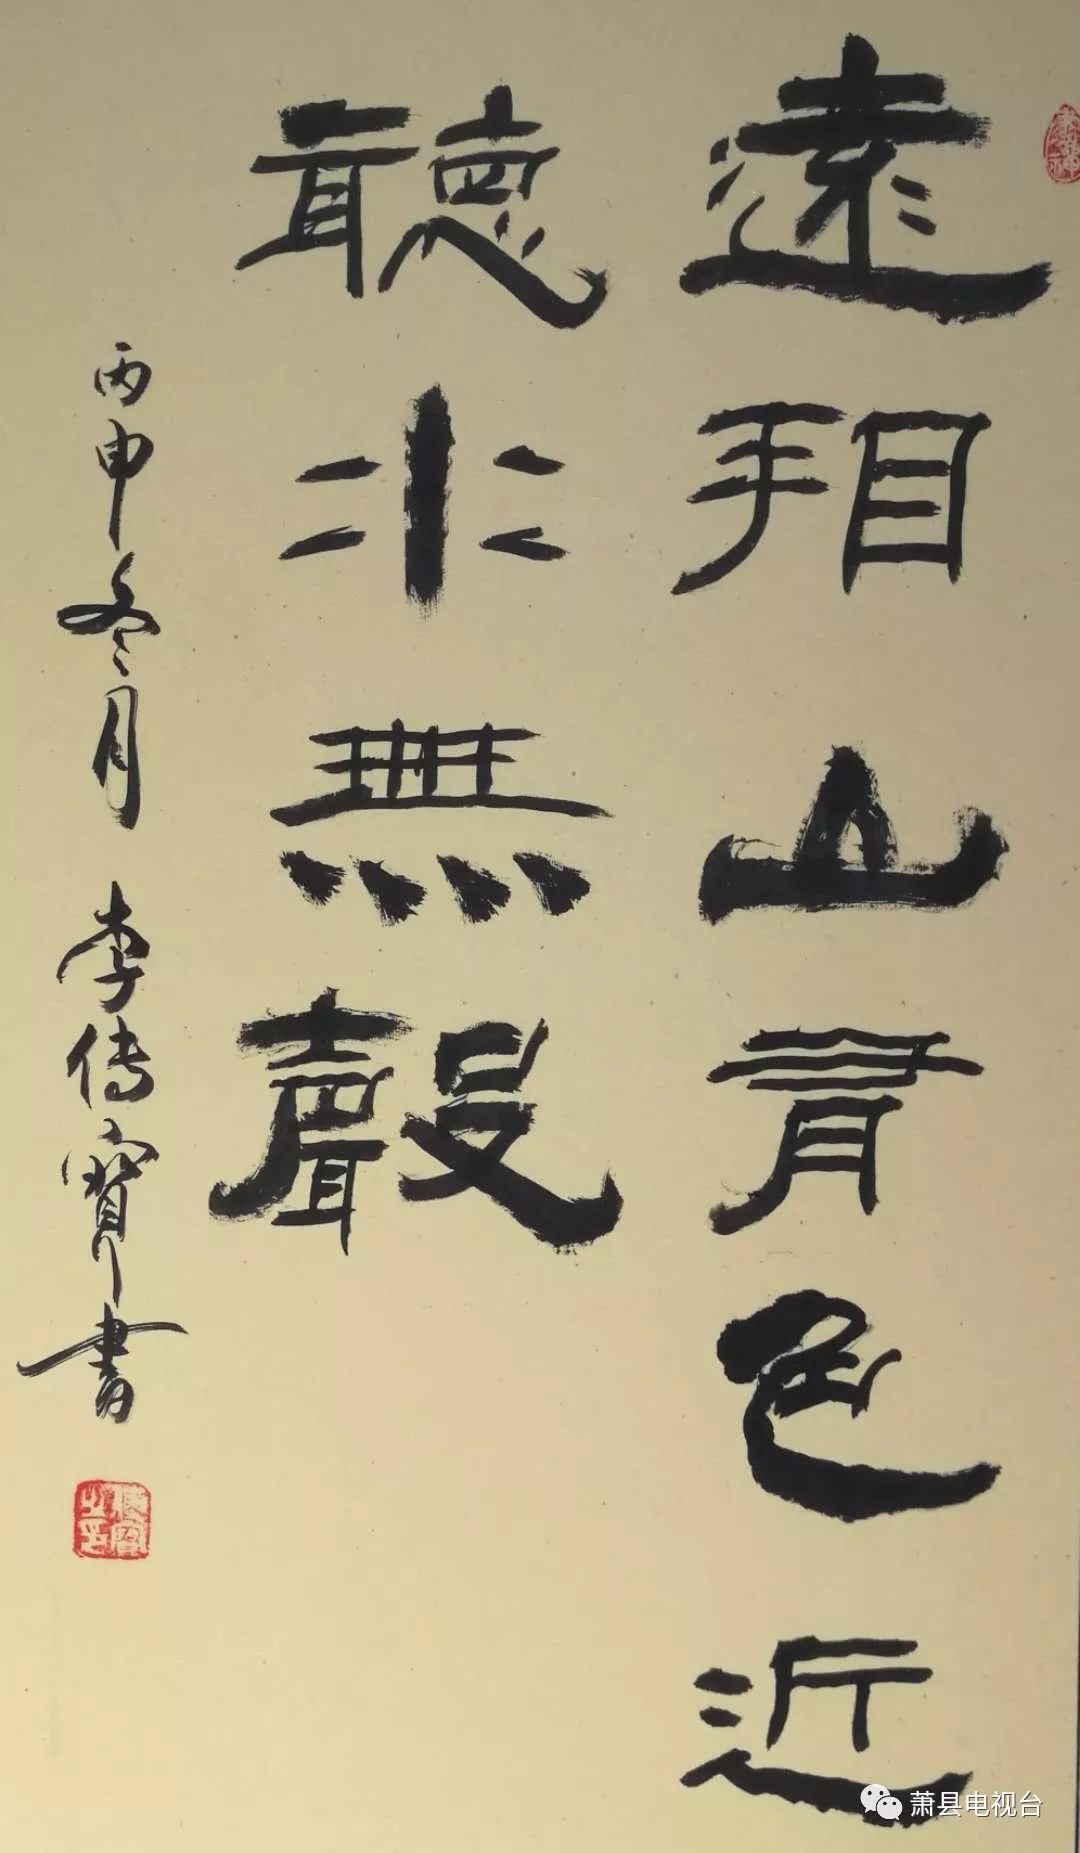 遠看山有色近
聽水無聲
丙申冬月 李传寶書
萧县电视台